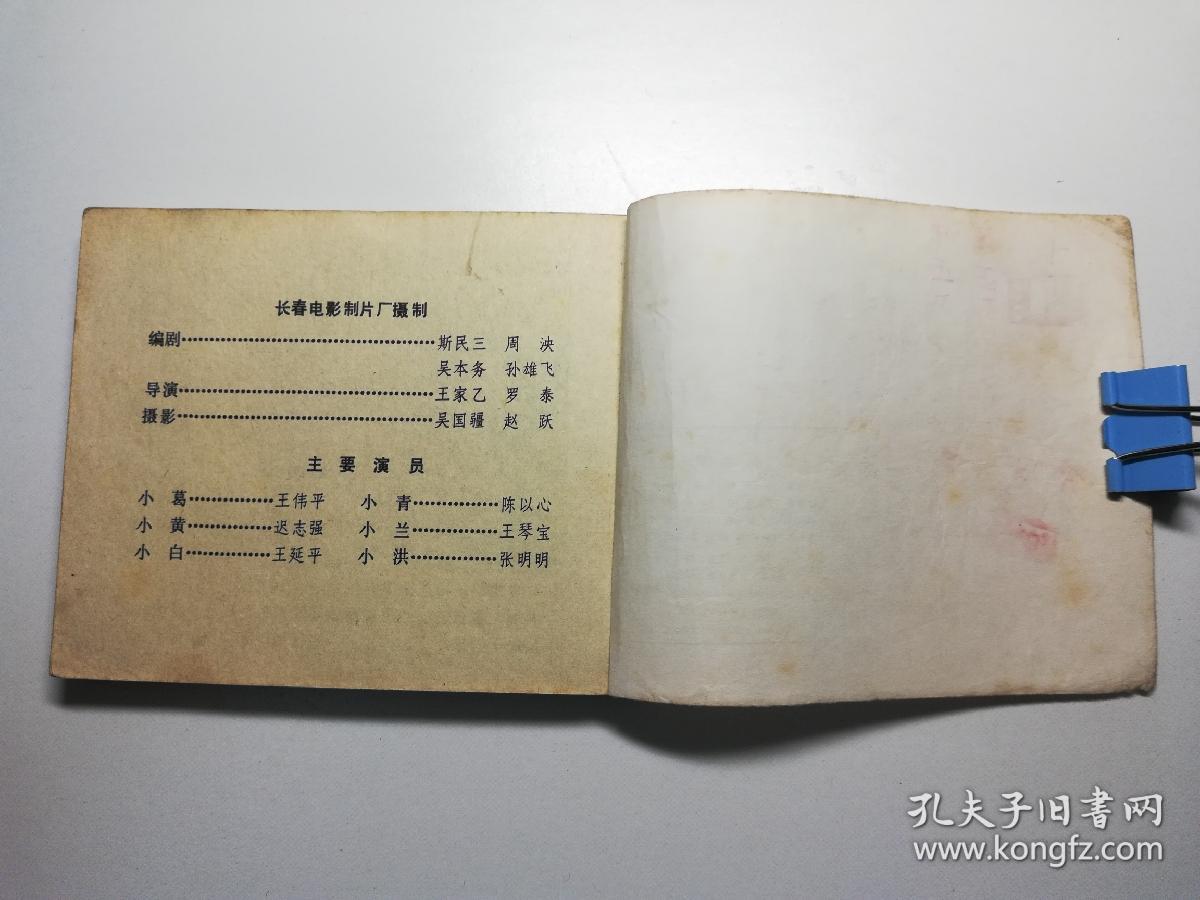 长春电影制片厂摄制
编剧……………………………………斯民三 周 泱
吴本务 孙雄飞
导演……………………………………王家乙 罗 泰
摄影……………………………………吴国疆 赵 跃
主要演员
小 葛……………王伟平 小 青……………陈以心
小 黄……………迟志强 小 兰……………王琴宝
小 白……………王延平 小 洪……………张明明
孔夫子旧书网
www.kongfz.com